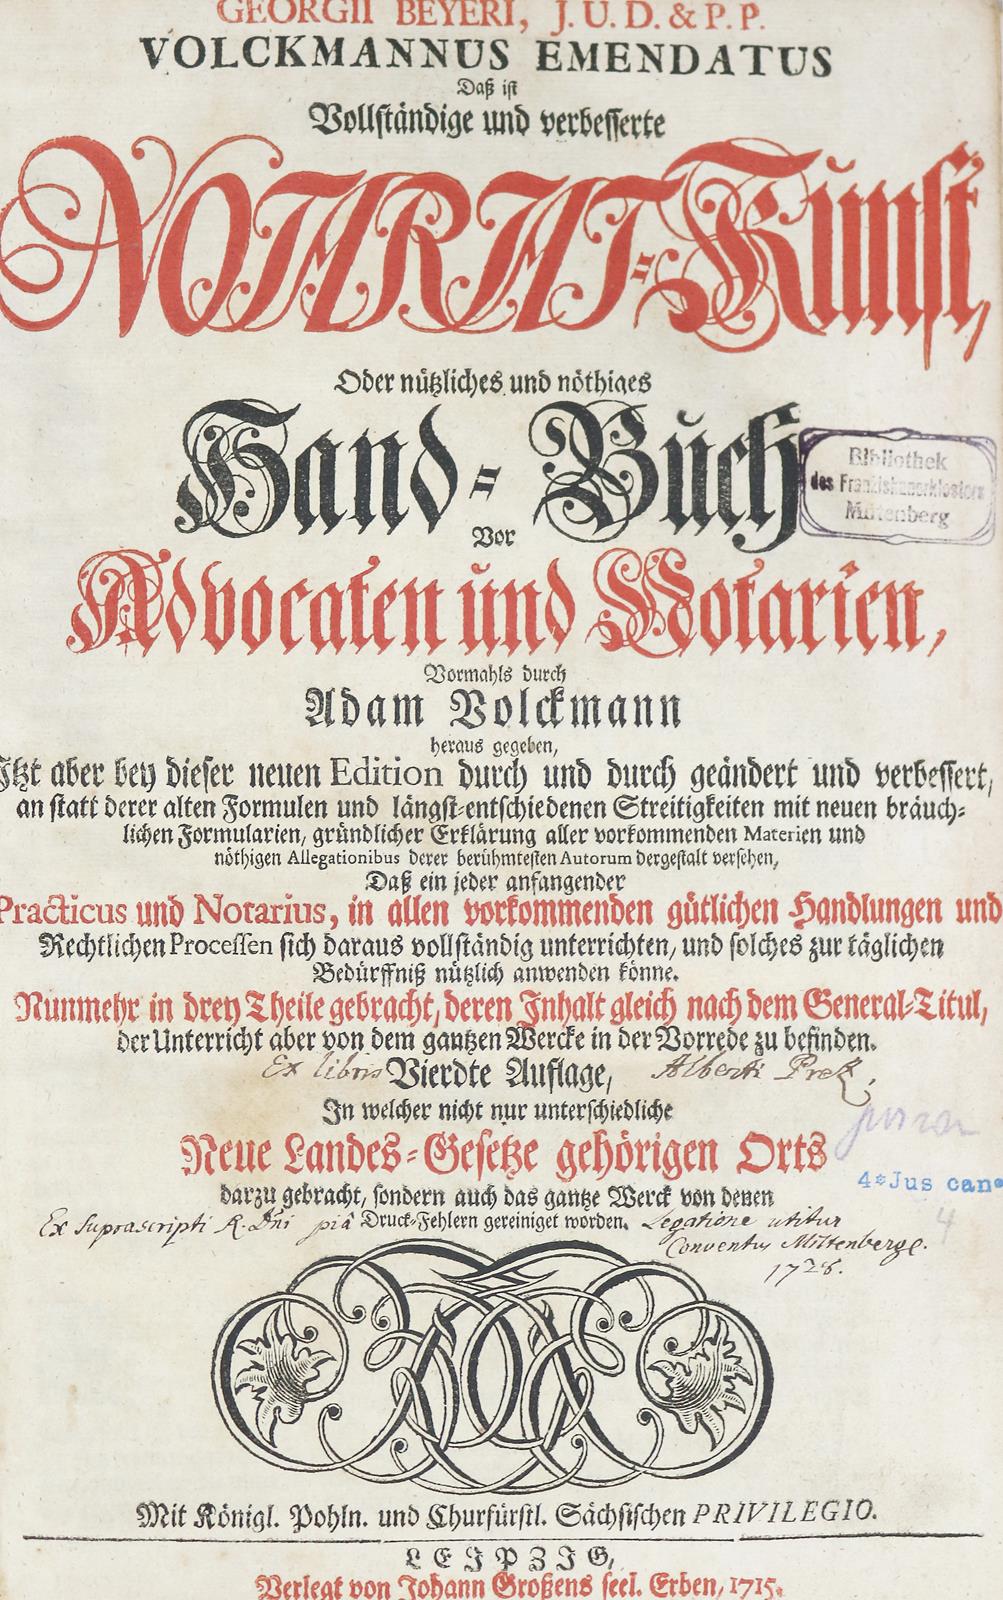 GEORGII BEYERI, J. U. D. & P. P.
VOLCKMANNUS EMENDATUS
Daß ist
Vollständige und verbesserte
NOTARIAT-Kunst,
Oder nützliches und nöthiges
Hand-Buch
Vor
Advocaten und Notarien,
Vormahls durch
Adam Volckmann
heraus gegeben,
Jtzt aber bey dieser neuen Edition durch und durch geändert und verbessert,
an statt derer alten Formulen und längst-entschiedenen Streitigkeiten mit neuen bräuch-
lichen Formularien, gründlicher Erklärung aller vorkommenden Materien und
nöthigen Allegationibus derer berühmtesten Autorum dergestalt versehen,
Daß ein jeder anfangender
Practicus und Notarius, in allen vorkommenden gütlichen Handlungen und
Rechtlichen Processen sich daraus vollständig unterrichten, und solches zur täglichen
Bedürffniß nützlich anwenden könne.
Nunmehr in drey Theile gebracht, deren Jnhalt gleich nach dem General-Titul,
der Unterricht aber von dem gantzen Wercke in der Vorrede zu befinden.
Ex libris Vierdte Auflage, Alberti
Jn welcher nicht nur unterschiedliche
Neue Landes-Gesetze gehörigen Orts
darzu gebracht, sondern auch das gantze Werck von denen
Druck-Fehlern gereiniget worden.
Ex supra scripti R. Dni piâ Legatione utitur
Conventus Miltenberge.
1728.
Bibliothek
des Franziskanerklosters
Miltenberg
4° Jus can.
4
Mit Königl. Pohln. und Churfürstl. Sächsischen PRIVILEGIO.
LEJPZJG,
Verlegt von Johann Großens seel. Erben, 1715.